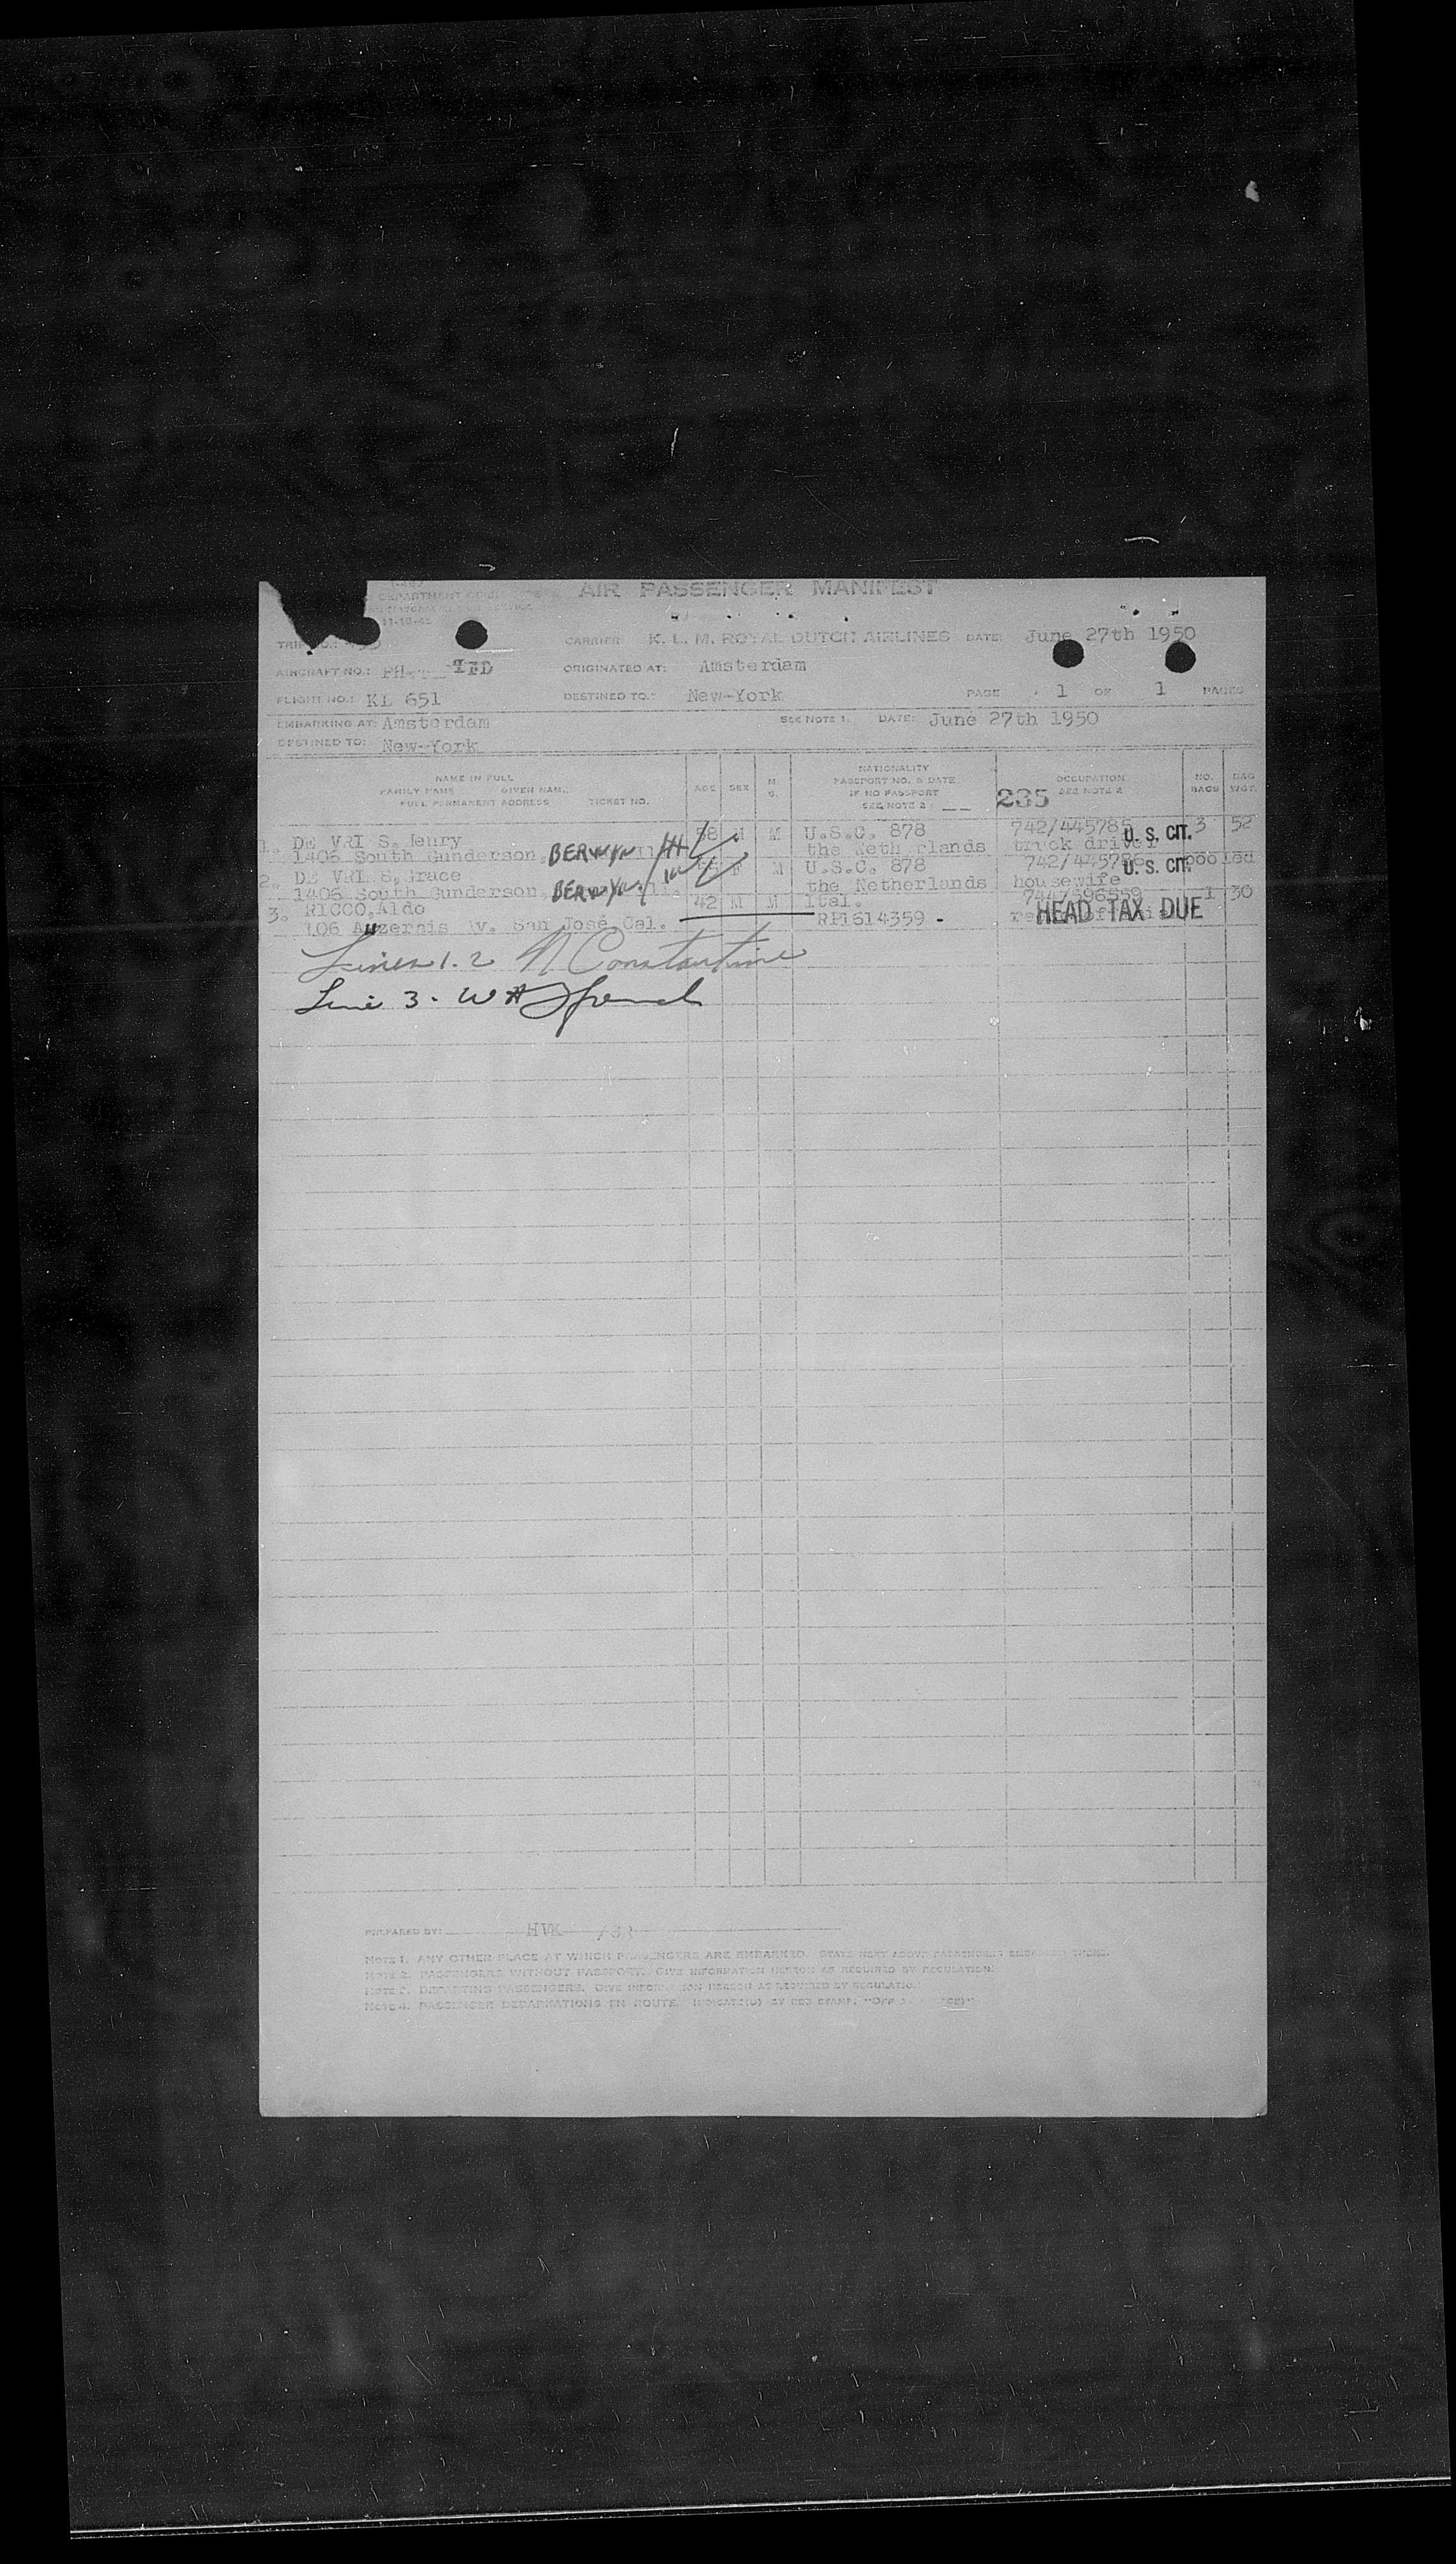 AIR PASSENGER MANIFEST
11-18-48
CARRIER K. L. M. ROYAL DUTCH AIRLINES DATE: June 27th 1950
AIRCRAFT NO.: PH- TFD ORIGINATED AT: Amsterdam
FLIGHT NO.: KL 651 DESTINED TO: New-York PAGE 1 OF 1 PAGES
EMBARKING AT: Amsterdam SEE NOTE 1. DATE: June 27th 1950
DESTINED TO: New-York
NAME IN FULL
FAMILY NAME GIVEN NAME
FULL PERMANENT ADDRESS TICKET NO.
AGE SEX M. S.
NATIONALITY
PASSPORT NO. & DATE
IF NO PASSPORT
SEE NOTE 2
235 OCCUPATION
SEE NOTE 2
NO. BAGS
BAG WGT.
1. DE VRI S, Henry 58 M M U.S.C. 878 742/445785 U. S. CIT. 3 52
1406 South Gunderson, BERWYN Ill the Neth rlands truck driver
2. DE VRI S, Grace F M U.S.C. 878 742/445786 U. S. CIT. pooled
1406 South Gunderson, BERWYN Ill. the Netherlands housewife
3. RICCO, Aldo 42 M M Ital. 1 30
106 Auzerais Av. San José, Cal. RP1614359 - HEAD TAX DUE
Lines 1. 2 N Constantine
Line 3. W A
PREPARED BY: HVK
NOTE 1. ANY OTHER PLACE AT WHICH PASSENGERS ARE EMBARKED. STATE NEXT ABOVE PASSENGERS EMBARKED THERE.
NOTE 2. PASSENGERS WITHOUT PASSPORT. GIVE INFORMATION HEREON AS REQUIRED BY REGULATION.
NOTE 3. DEPARTING PASSENGERS. GIVE INFORMATION HEREON AS REQUIRED BY REGULATION.
NOTE 4. PASSENGER DEBARKATIONS EN ROUTE. INDICATE(D) BY RED STAMP: